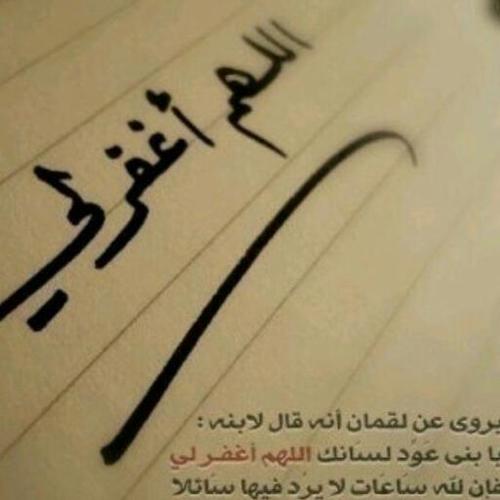 اللهم أغفر لي
يروى عن لقمان أنه قال لابنه :
يا بنى عَوِّد لسَانك اللهم أغفر لي
فان للّه سَاعَات لا يرَد فيها سَائلا